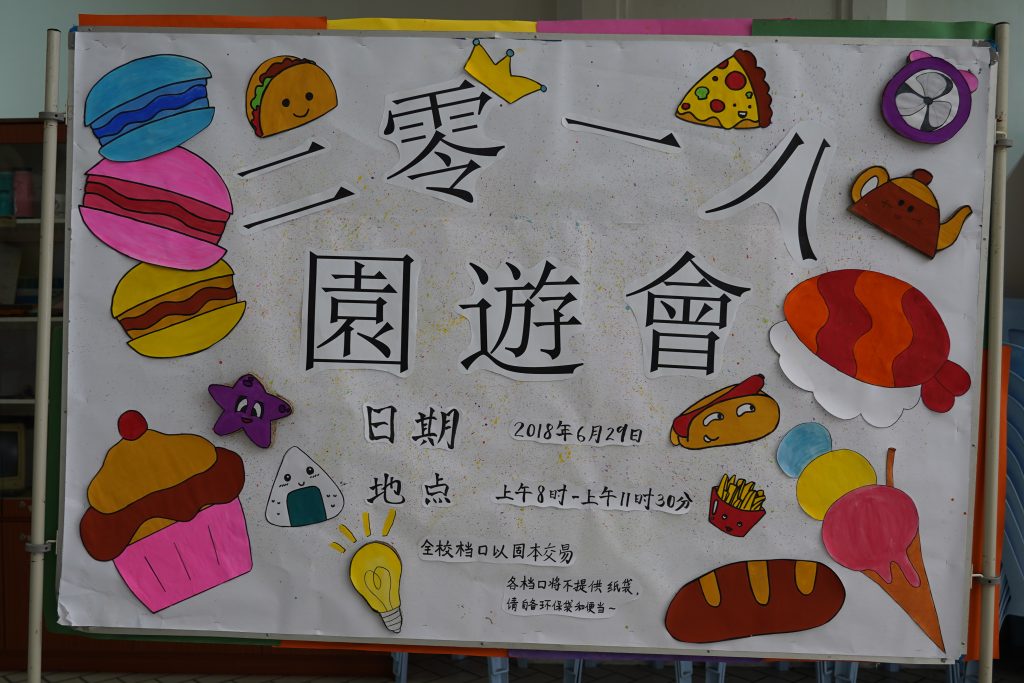 二零一八
園遊會
日期 2018年6月29日
地点 上午8时-上午11时30分
全校档口以固本交易
各档口将不提供纸袋，
请自备环保袋和便当~